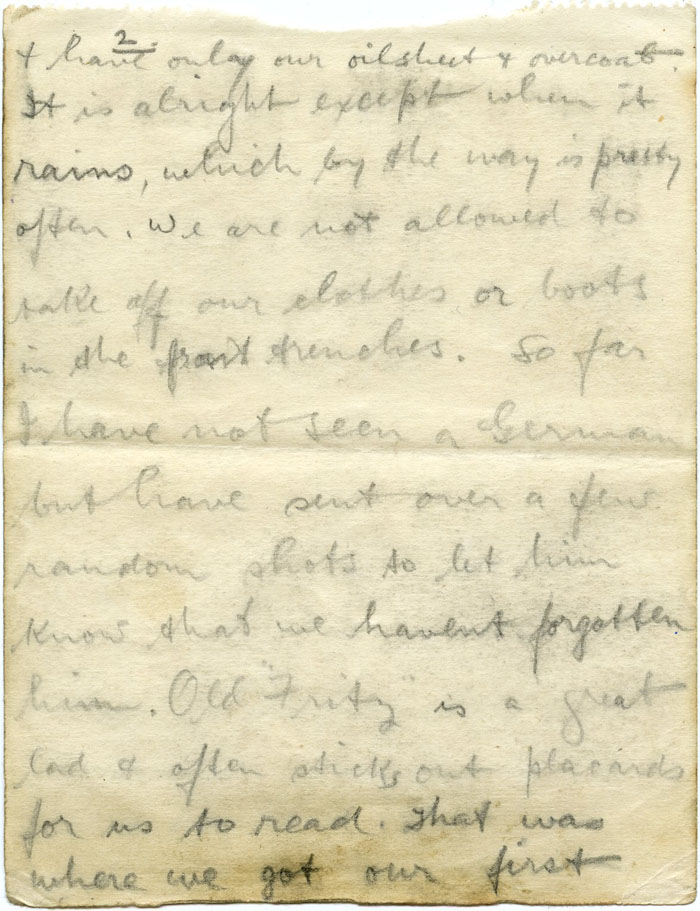 2.
& have only our oilsheet & overcoat.
It is alright except when it
rains, which by the way is pretty
often. We are not allowed to
take off our clothes or boots
in the front trenches. So far
I have not seen a German
but have sent over a few
random shots to let him
know that we havent forgotten
him. Old "Fritz" is a great
lad & often sticks out placards
for us to read. That was
where we got our first